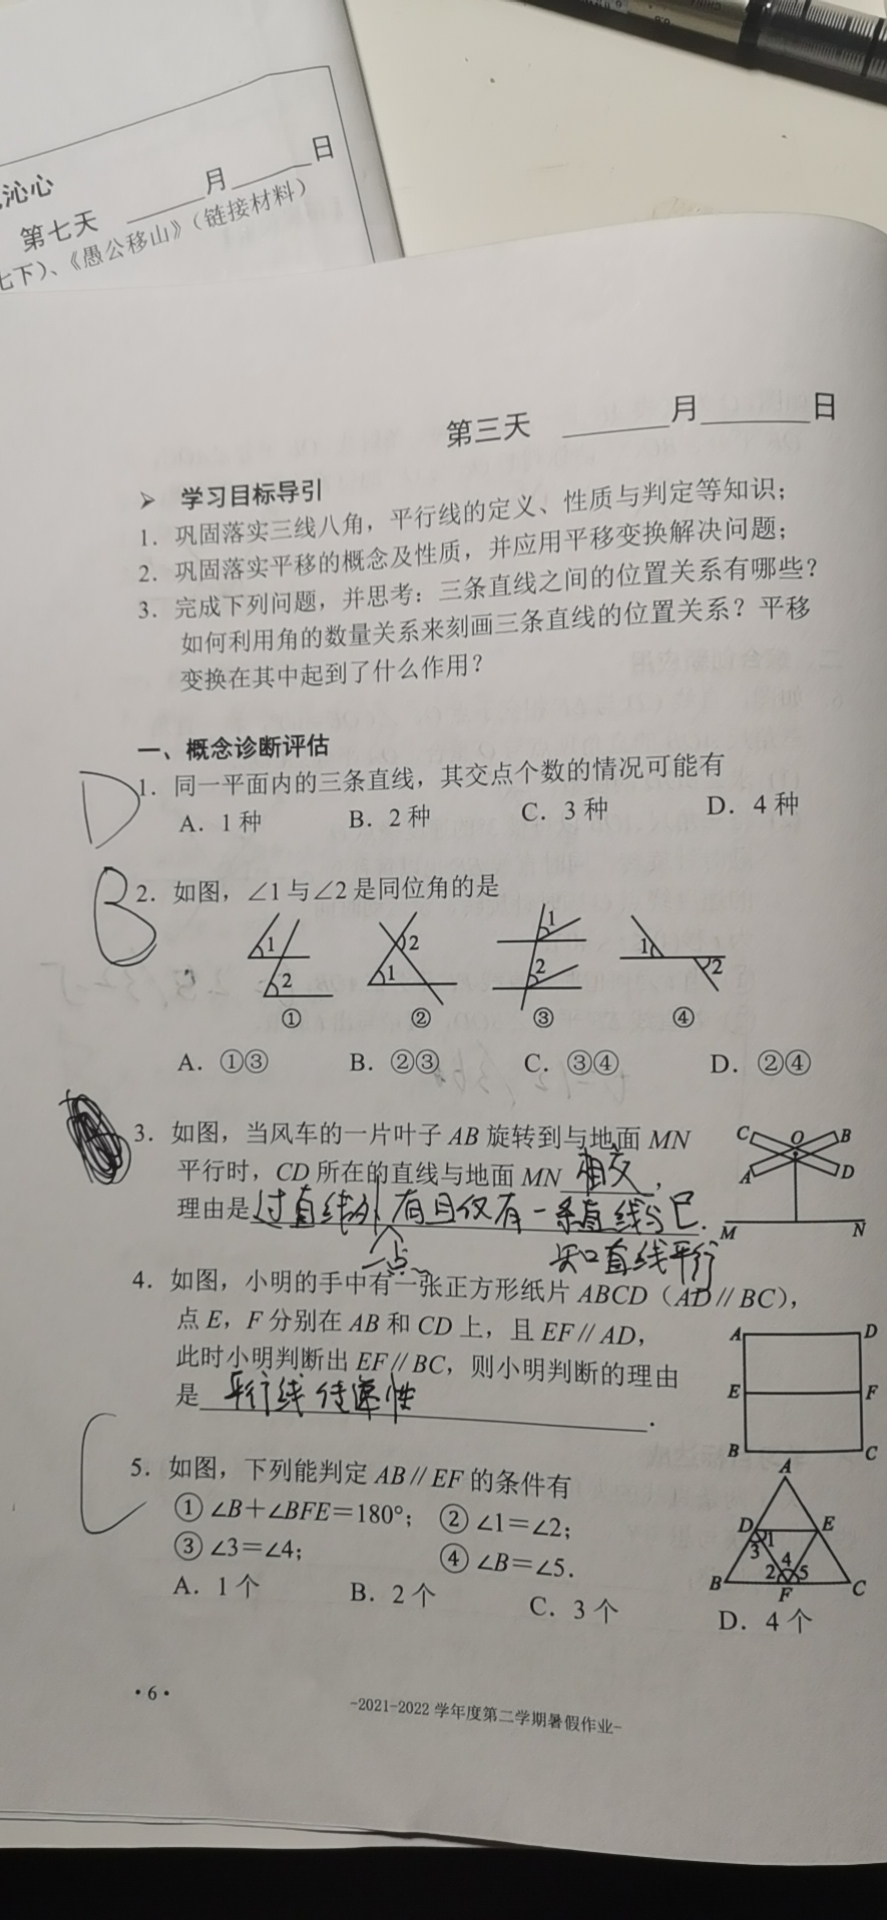 沁心
第七天 ____月____日
七下)、《愚公移山》（链接材料）
第三天 ____月____日
➤ 学习目标导引
1．巩固落实三线八角，平行线的定义、性质与判定等知识；
2．巩固落实平移的概念及性质，并应用平移变换解决问题；
3．完成下列问题，并思考：三条直线之间的位置关系有哪些？
如何利用角的数量关系来刻画三条直线的位置关系？平移
变换在其中起到了什么作用？
一、概念诊断评估
D 1．同一平面内的三条直线，其交点个数的情况可能有
A．1 种 B．2 种 C．3 种 D．4 种
B 2．如图，∠1 与∠2 是同位角的是
1 2 2 1 1 2 1 2
① ② ③ ④
A．①③ B．②③ C．③④ D．②④
3．如图，当风车的一片叶子 AB 旋转到与地面 MN
平行时，CD 所在的直线与地面 MN 相交，
理由是过直线外有且仅有一条直线与已
一点
知直线平行
C O B
A D
M N
4．如图，小明的手中有一张正方形纸片 ABCD（AD∥BC），
点 E，F 分别在 AB 和 CD 上，且 EF∥AD，
此时小明判断出 EF∥BC，则小明判断的理由
是 平行线传递性．
A D
E F
B C
C 5．如图，下列能判定 AB∥EF 的条件有
① ∠B＋∠BFE＝180°； ② ∠1＝∠2；
③ ∠3＝∠4； ④ ∠B＝∠5．
A．1 个 B．2 个 C．3 个 D．4 个
A
D 1 E
3 4
B 2 5 C
F
·6·
-2021-2022 学年度第二学期暑假作业-